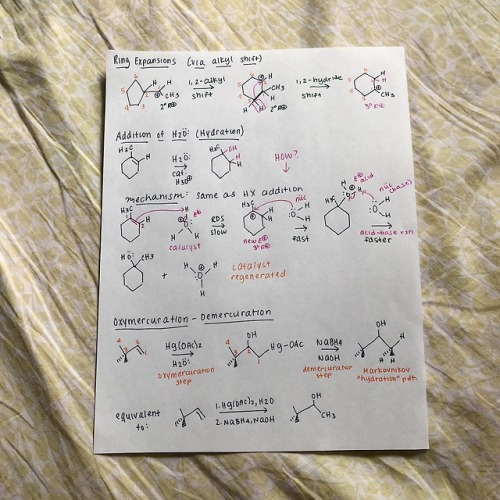 Ring Expansions (via alkyl shift)
1,2-alkyl shift
1,2-hydride shift
H
H
CH3
2° R⊕
CH3
2° R⊕
H
H
CH3
3° R⊕
Addition of H2Ö: (Hydration)
H3C
H
H2Ö:
cat.
H3O⊕
H3C OH
H
H
HOW?
mechanism: same as HX addition
H3C
H
H
H
catalyst
RDS
slow
H3C
H
H
new E⊕
3° R⊕
nüc
H
H
fast
acid
H3C
nüc
(base)
H
H
acid-base rxn
faster
HÖ: CH3
+
H
H
H
catalyst
regenerated
Oxymercuration - Demercuration
4 3 2 1
Hg(OAc)2
H2Ö:
oxymercuration
step
OH
Hg-OAc
4 3 2 1
NaBH4
NaOH
demercuration
step
OH
H
Markovnikov
"hydration" pdt.
equivalent
to:
1. Hg(OAc)2, H2O
2. NaBH4, NaOH
OH
CH3